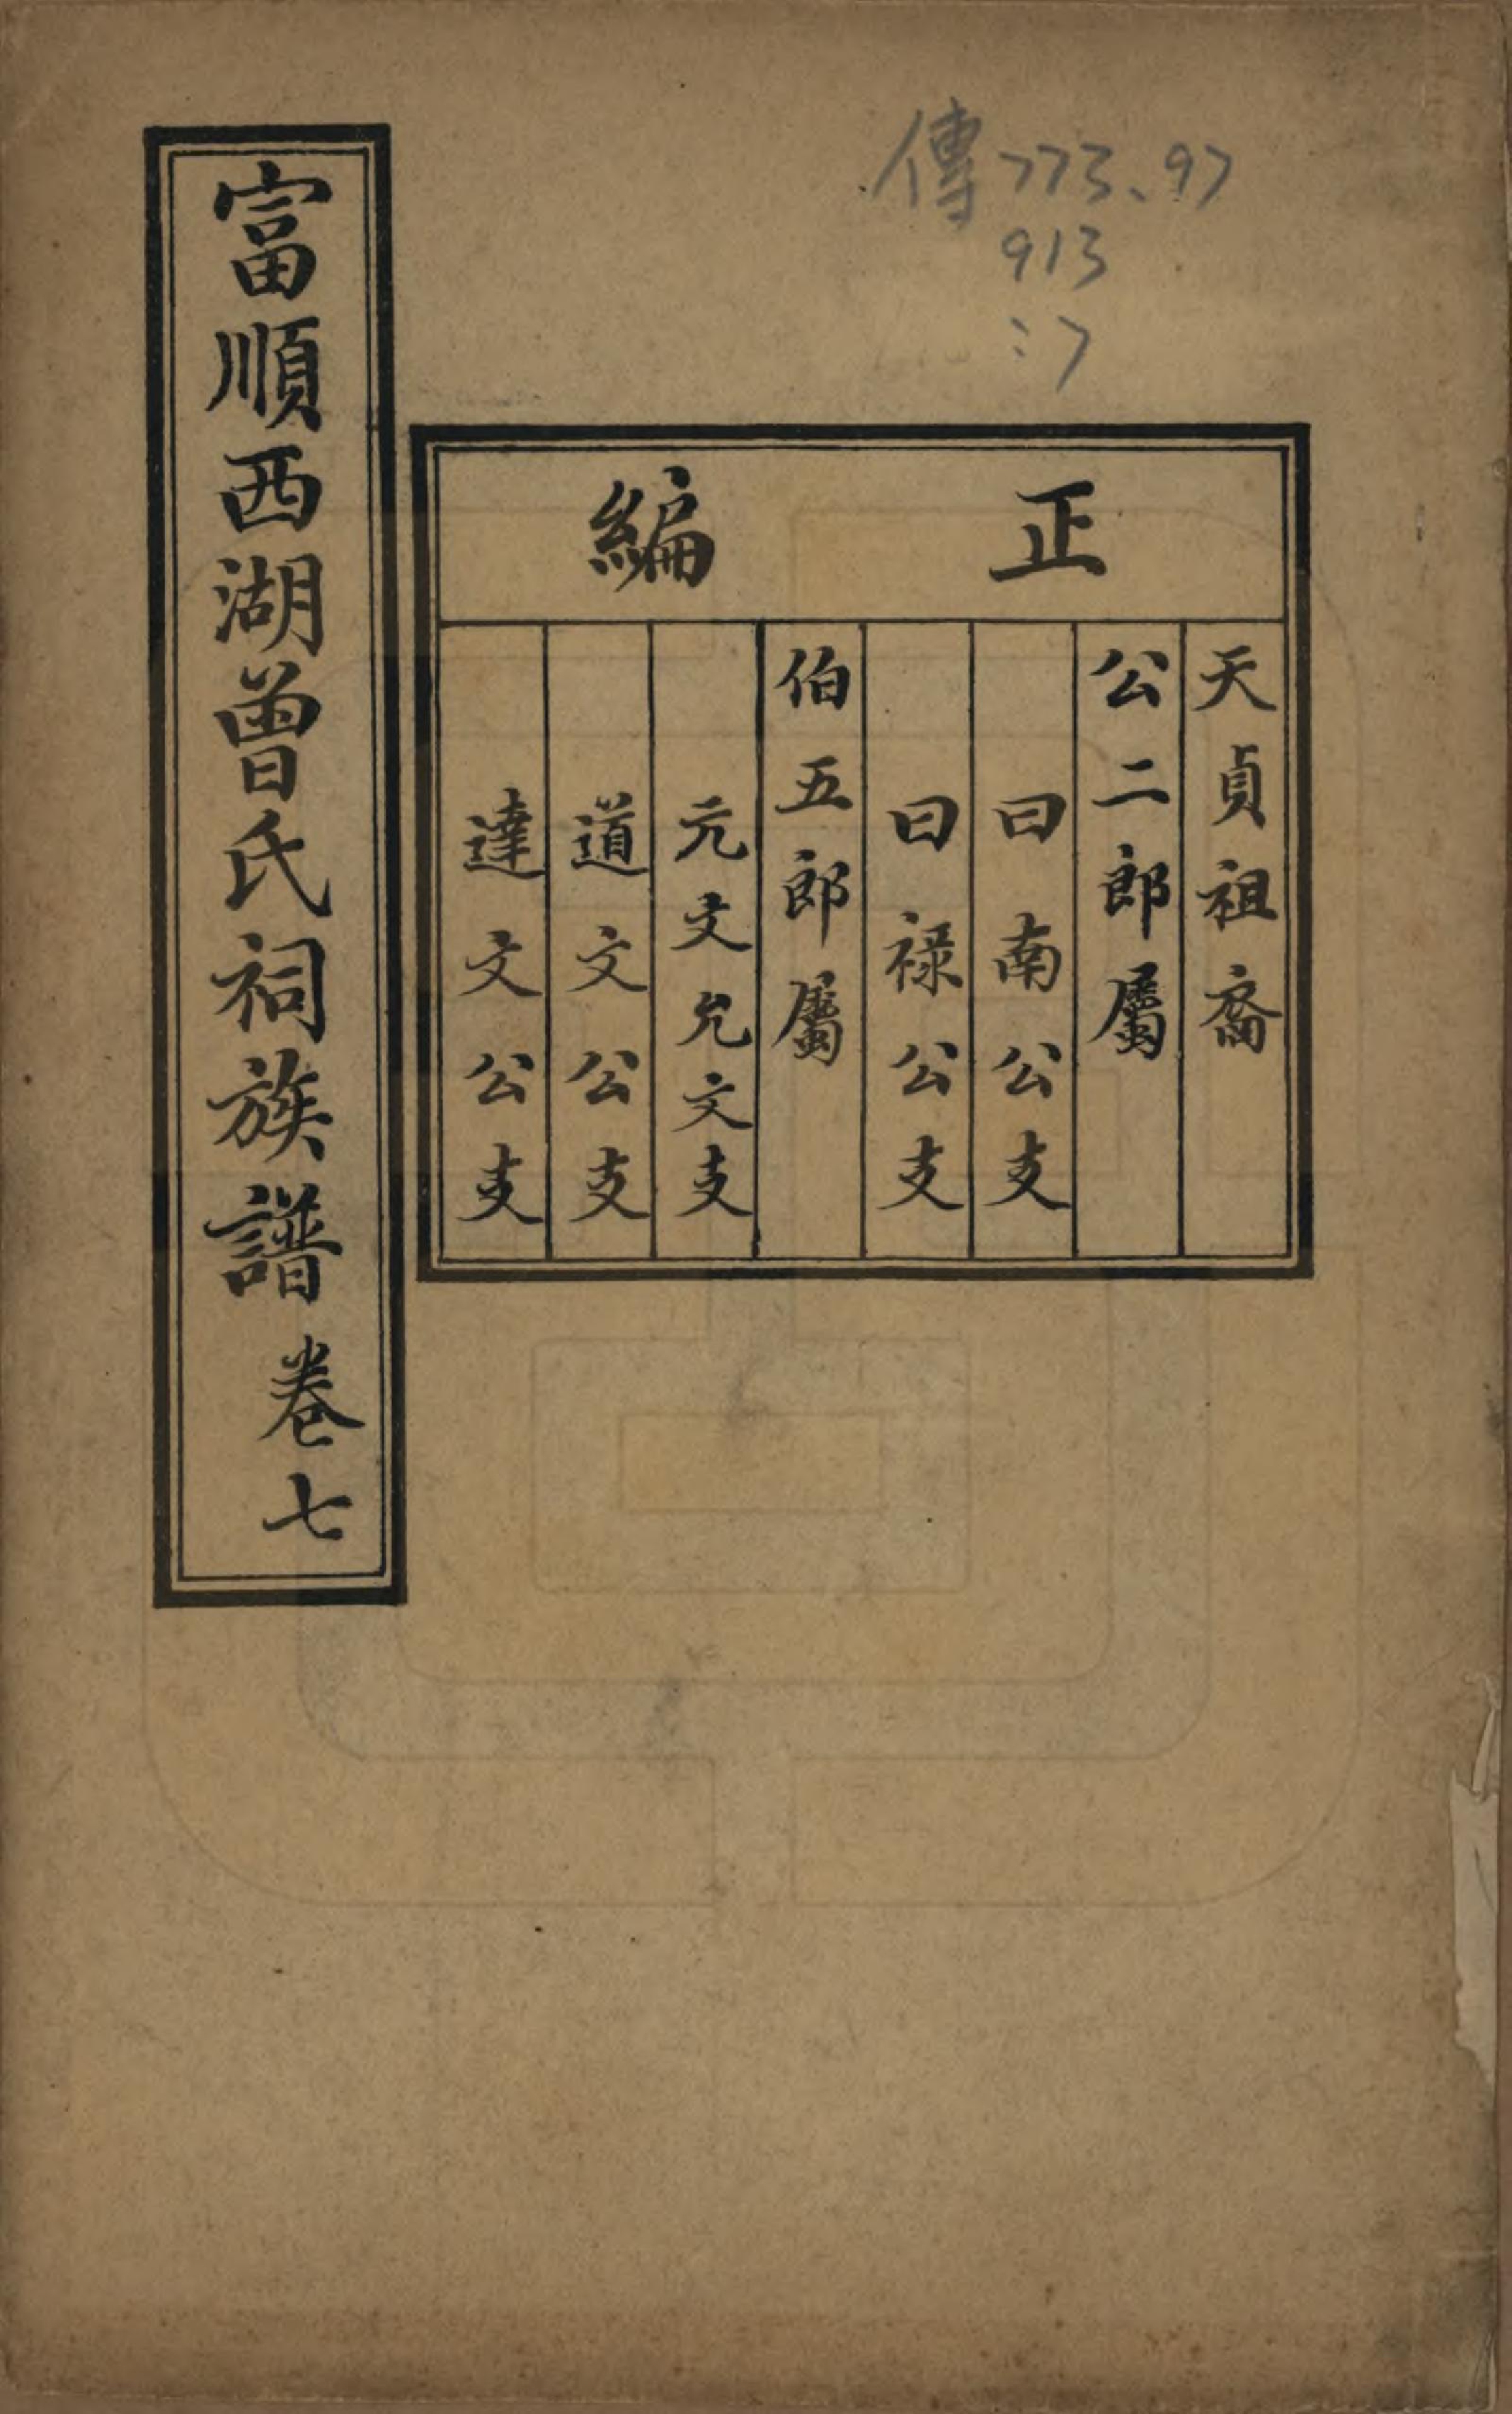 傳773.97
913
:7
正編
天貞祖裔
公二郎屬
曰南公支
曰祿公支
伯五郎屬
元文允文支
道文公支
達文公支
富順西湖曾氏祠族譜卷七